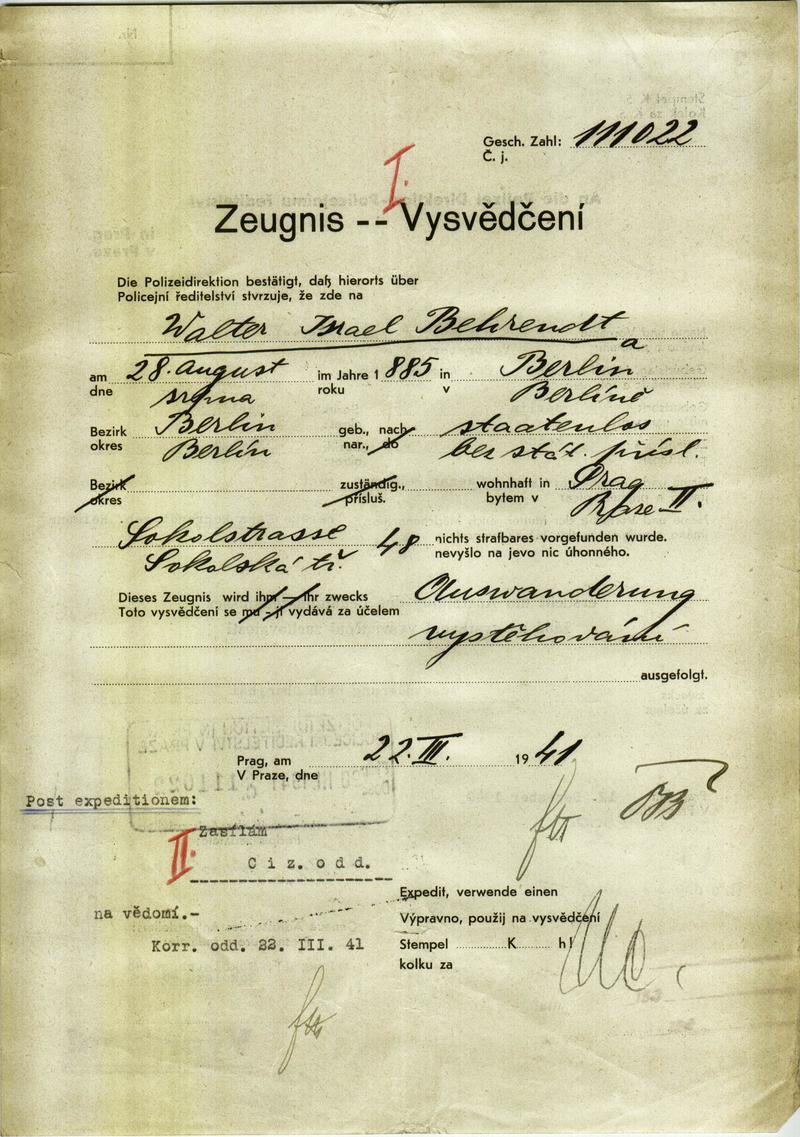 Gesch. Zahl: 111022
Č. j.
I.
Zeugnis -- Vysvědčení
Die Polizeidirektion bestätigt, daß hierorts über
Policejní ředitelství stvrzuje, že zde na
Walter Israel Behrendt
a
am 28. August im Jahre 1885 in Berlin
dne srpna roku v Berlíně
Bezirk Berlin geb., nach staatenlos
okres Berlín nar., do bez stát. přísl.
Bezirk zuständig., wohnhaft in Prag
okres přísluš. bytem v Praze II.
Sokolstrasse 48 nichts strafbares vorgefunden wurde.
Sokolská tř. nevyšlo na jevo nic úhonného.
Dieses Zeugnis wird ihm — ihr zwecks Auswanderung
Toto vysvědčení se mu - jí vydává za účelem
vystěhování
ausgefolgt.
Prag, am 22. III. 1941
V Praze, dne
Post expeditionem:
Zasílám
II.
Ciz. odd.
Expedit, verwende einen
na vědomí.-
Výpravno, použij na vysvědčení
Korr. odd. 22. III. 41
Stempel K h!
kolku za